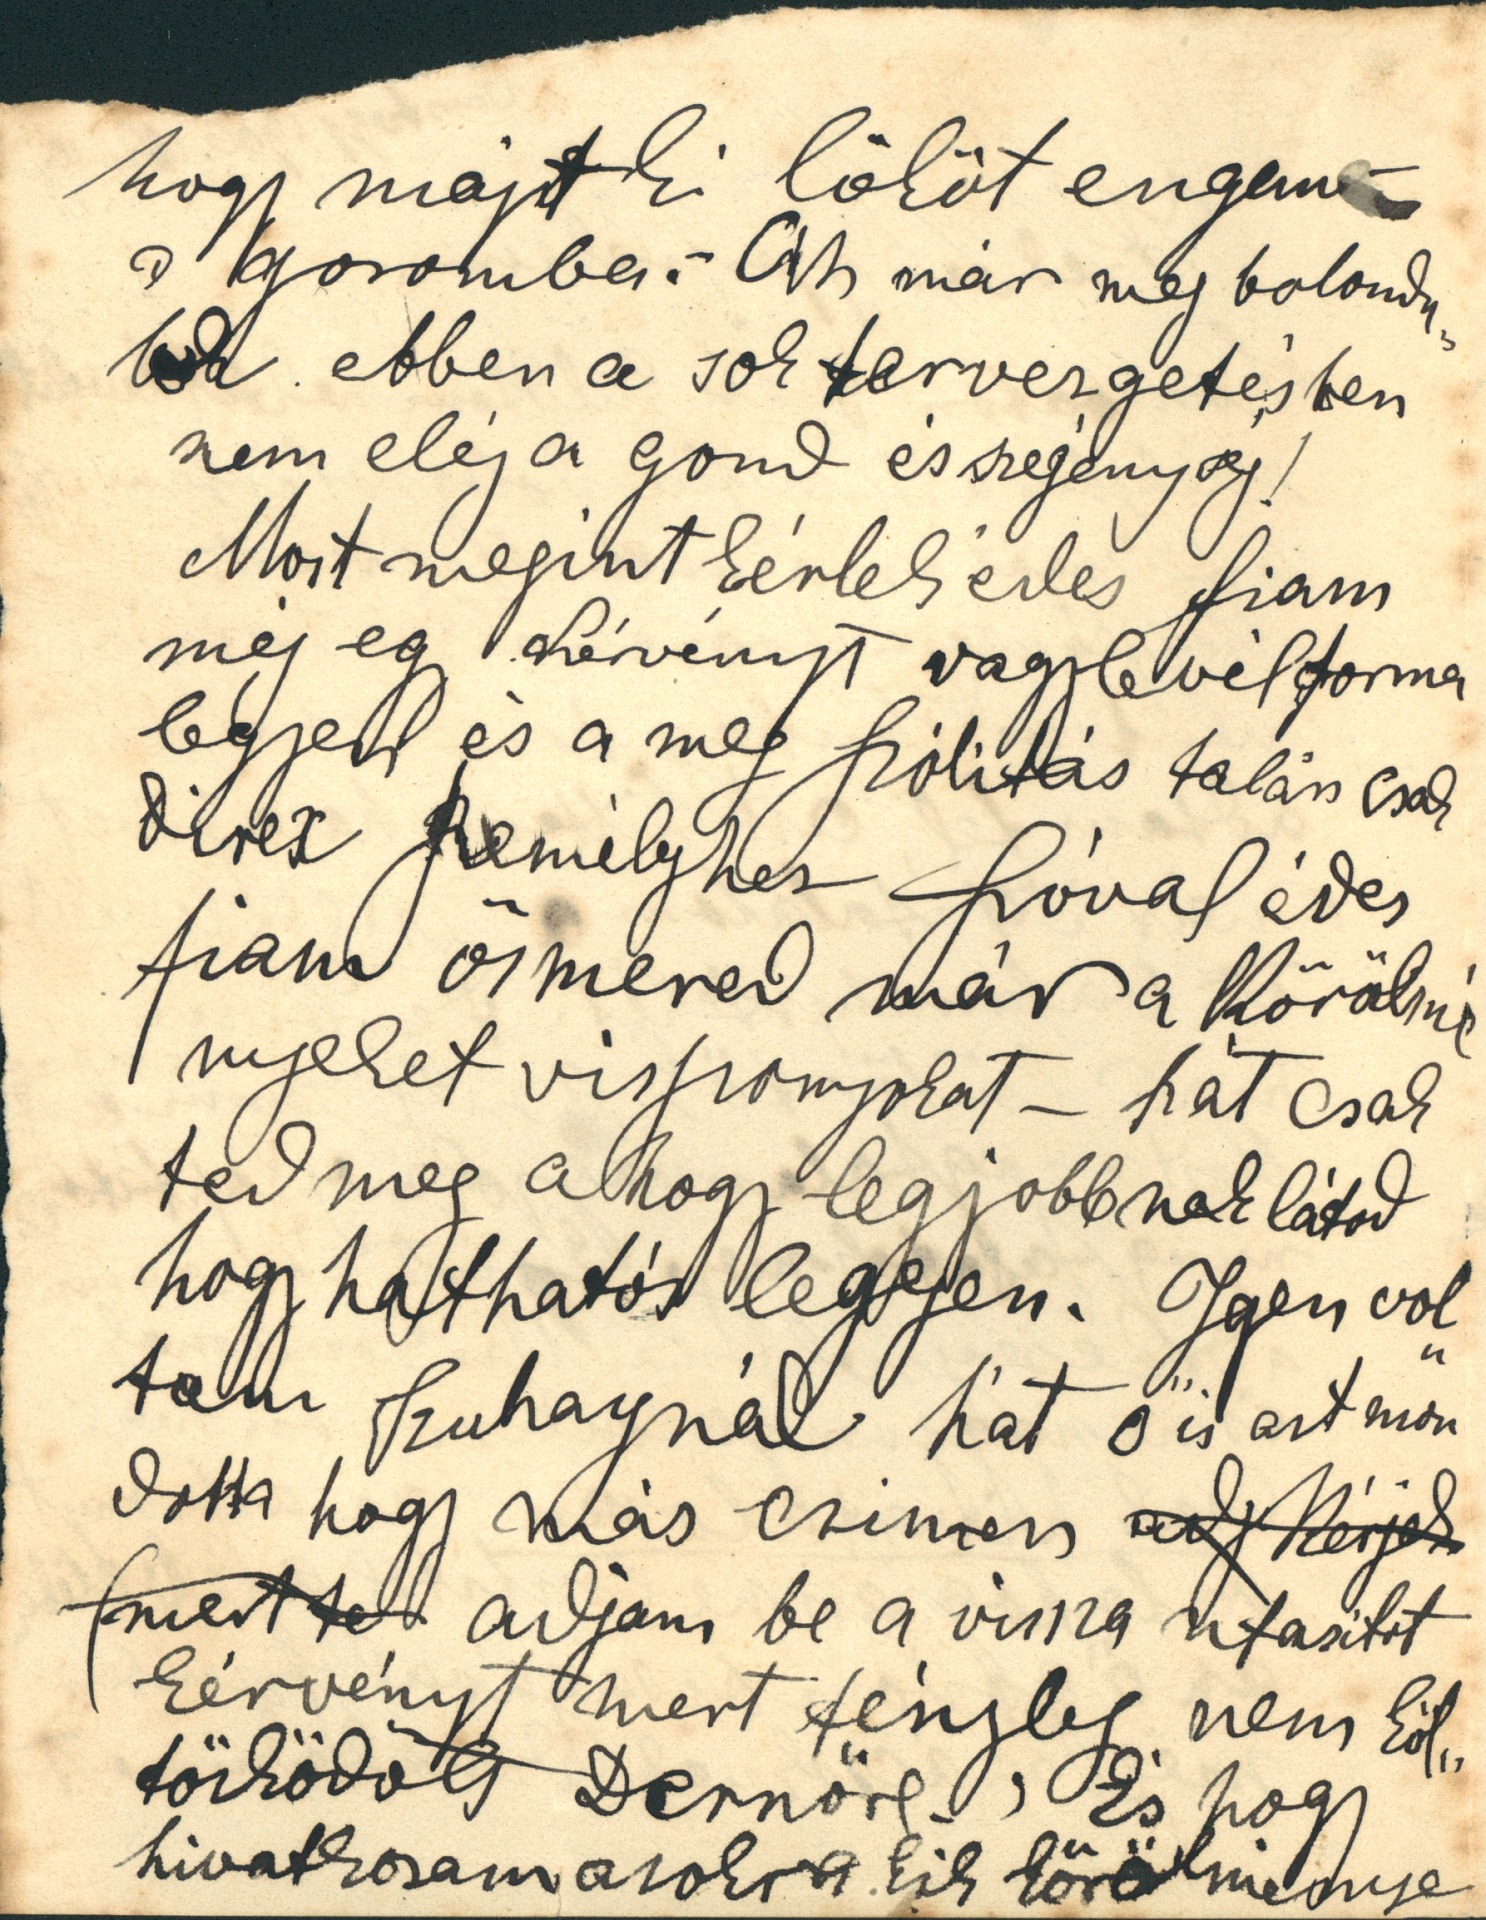 hogy majd ki lököt engem
s goromba. Ah már meg bolondu„
lok ebben a sok tervezgetésben
nem elég a gond és szegénység!
Most megint kérlek édes fiam
még egy kérvényt vagy levél forma
légyen és a meg szólitás talán csak
direx személyhez szóval édes
fiam ösmered már a körölmé
nyeket viszonyokat – hát csak
ted meg ahogy legjobbnak látod
hogy hathatós legyen. Igen vol
tam Szuhaynál hát ő is azt mon„
dotta hogy más czimen adj kérjek
(mert te adjam be a vissza utasitot
kérvényt mert tényleg nem köl„
tözködöl Dernöre, És hogy
hivatkozam azokra kik körölménye